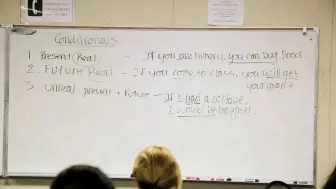 Conditionals
1. Present (Real) - If you are hungry, you can buy food.
2. Future Real - If you come to class, you will get your grade.
3. Unreal present + future - If I had a cottage, I would be happier.